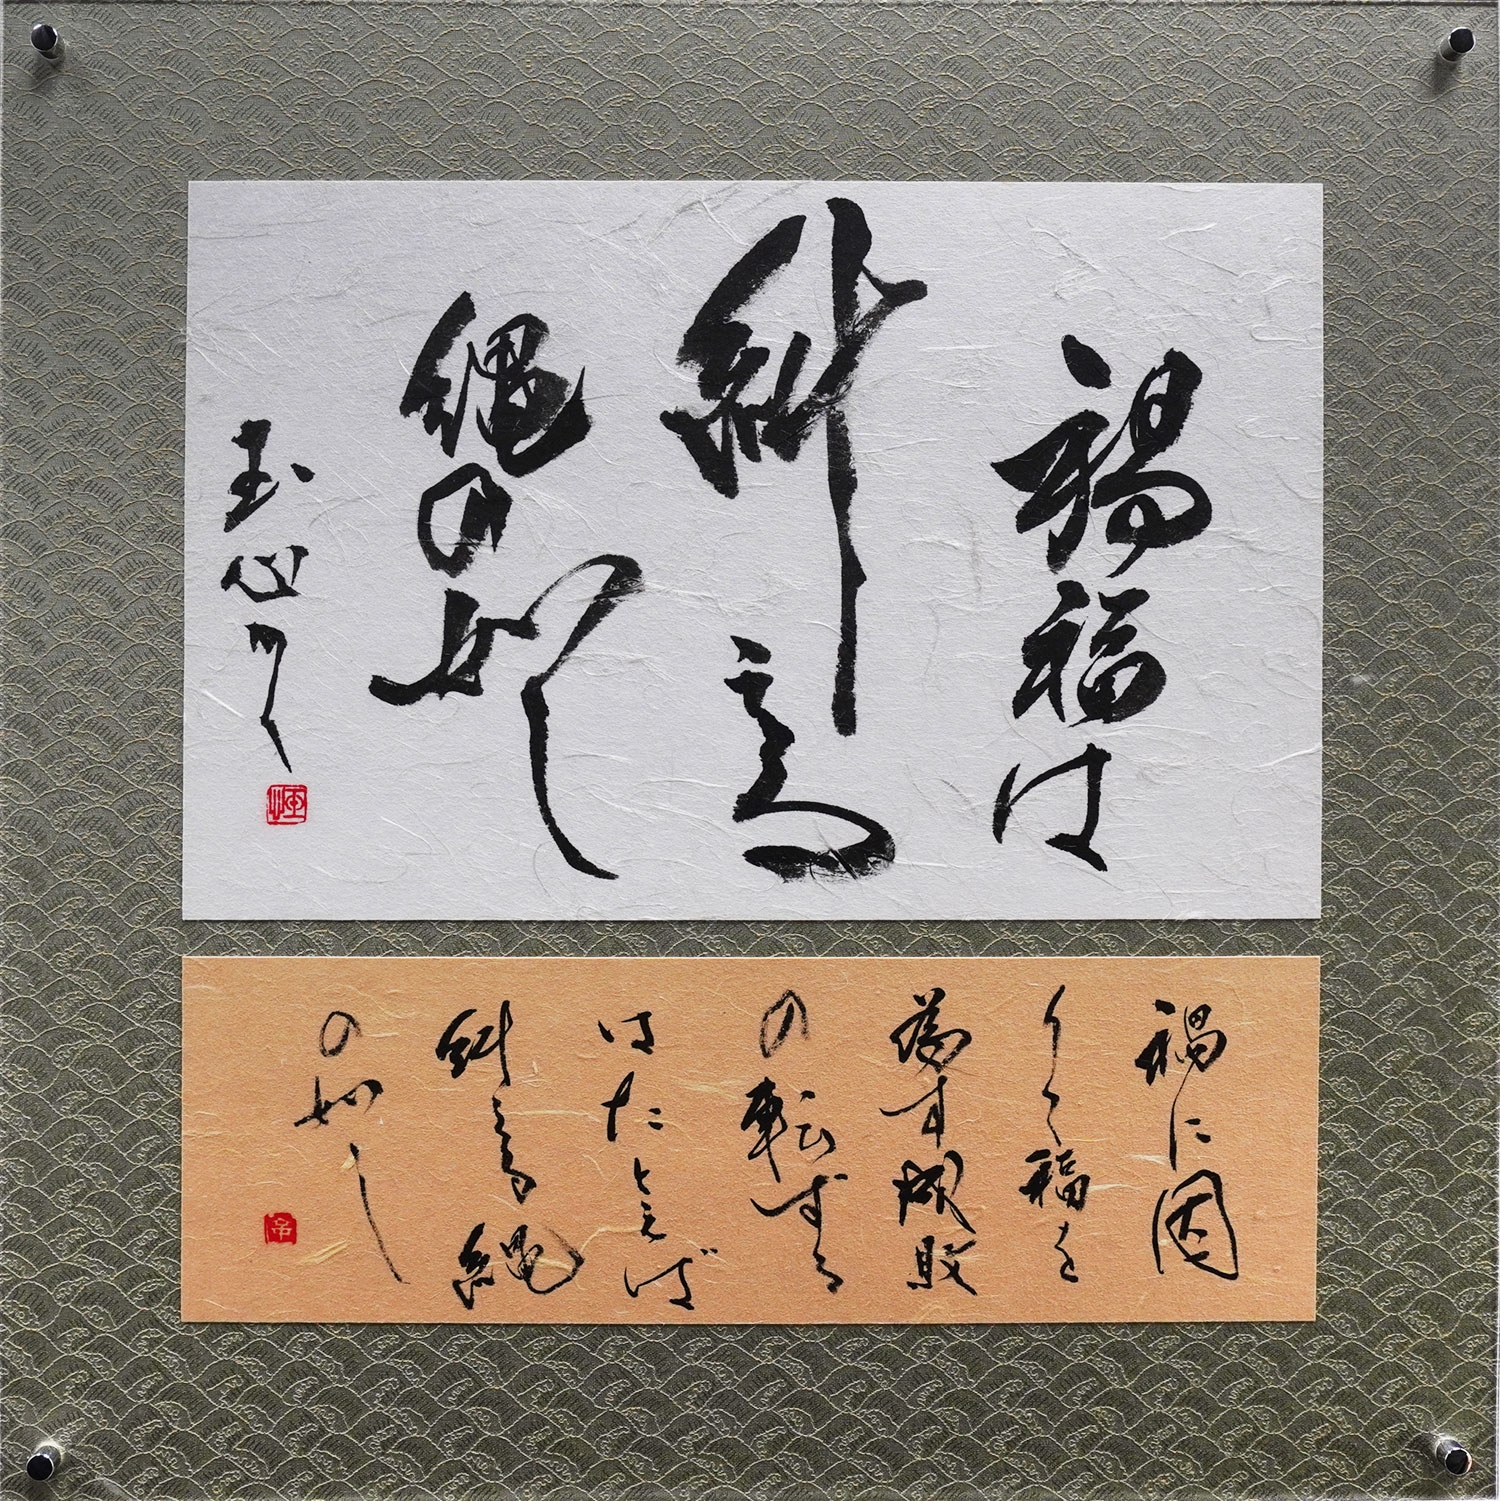 禍福は
糾える
縄の如し
玉心
禍に因
りて福を
為す成敗
の転ずる
はたとえば
糾える縄
の如し